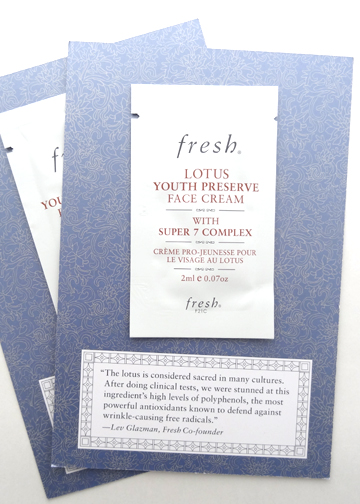 fresh®
LOTUS
YOUTH PRESERVE
FACE CREAM
WITH
SUPER 7 COMPLEX
CRÈME PRO-JEUNESSE POUR
LE VISAGE AU LOTUS
2ml e 0.07oz
fresh®
"The lotus is considered sacred in many cultures.
After doing clinical tests, we were stunned at this
ingredient's high levels of polyphenols, the most
powerful antioxidants known to defend against
wrinkle-causing free radicals."
—Lev Glazman, Fresh Co-founder
f
YOU